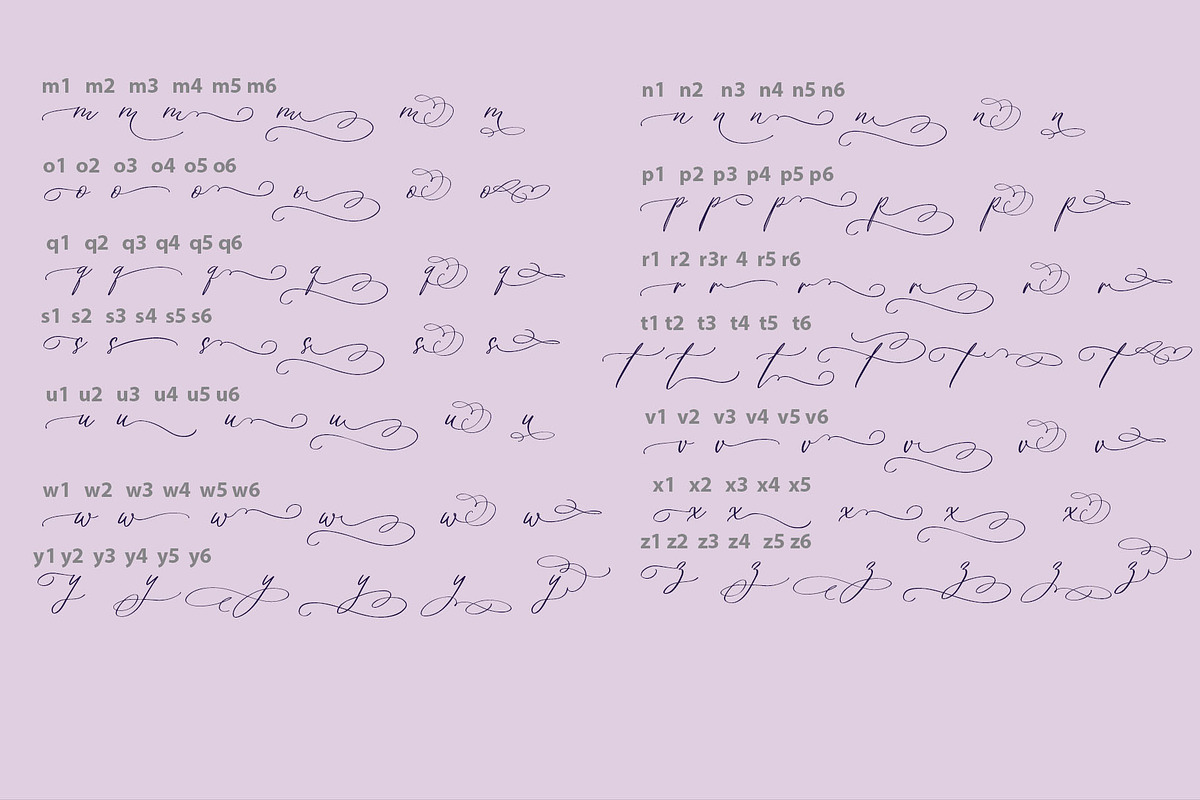 m1 m2 m3 m4 m5 m6
m m m m m m
o1 o2 o3 o4 o5 o6
o o o o o o
q1 q2 q3 q4 q5 q6
q q q q q q
s1 s2 s3 s4 s5 s6
s s s s s s
u1 u2 u3 u4 u5 u6
u u u u u u
w1 w2 w3 w4 w5 w6
w w w w w w
y1 y2 y3 y4 y5 y6
y y y y y y
n1 n2 n3 n4 n5 n6
n n n n n n
p1 p2 p3 p4 p5 p6
p p p p p p
r1 r2 r3r 4 r5 r6
r r r r r r
t1 t2 t3 t4 t5 t6
t t t t t t
v1 v2 v3 v4 v5 v6
v v v v v v
x1 x2 x3 x4 x5
x x x x x
z1 z2 z3 z4 z5 z6
z z z z z z